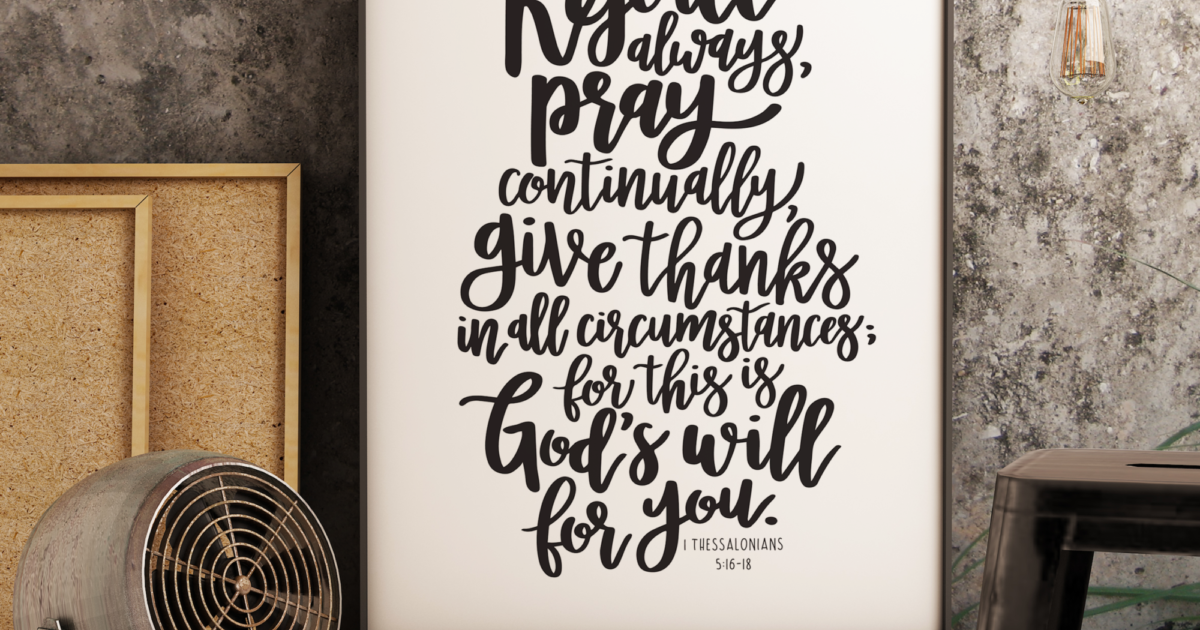 Rejoice
always,
pray
continually,
give thanks
in all circumstances;
for this is
God's will
for you.
1 THESSALONIANS
5:16-18